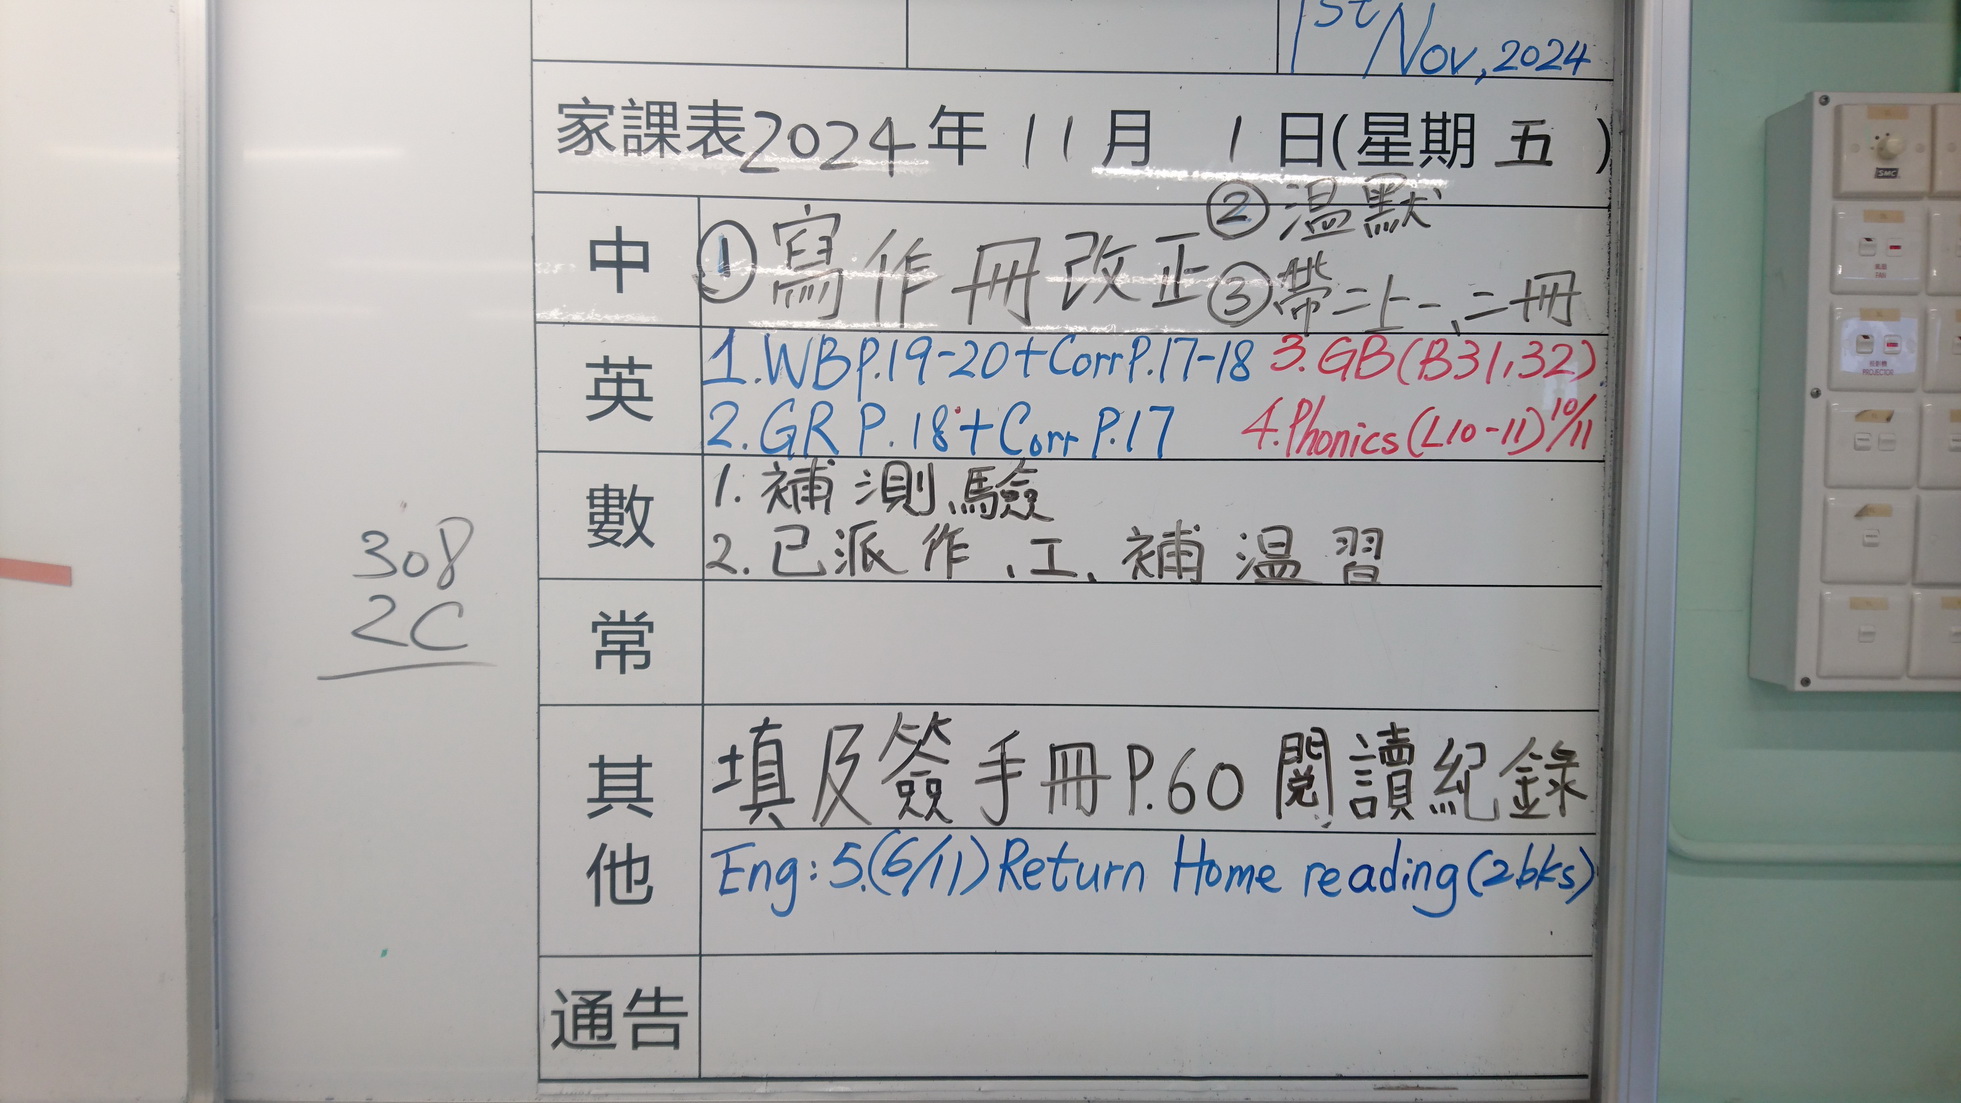 1st Nov, 2024
家課表2024年 11月 1日(星期五)
中
①寫作冊改正
②溫默
③帶二上一、二冊
英
1.WB P.19-20+Corr P.17-18
3.GB(B31,32)
2.GR P.18+Corr P.17
4.Phonics(L10-11)10/11
數
1.補測驗
2.已派作、工、補溫習
常
其他
填及簽手冊P.60閱讀紀錄
Eng: 5.(6/11) Return Home reading(2bks)
通告
308
2C
FAN
PROJECTOR